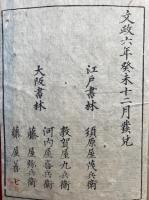 文政六年癸未十二月發兌
江戸書林
須原屋茂兵衛
大阪書林
敦賀屋九兵衛
河内屋喜兵衛
藤屋彌兵衛
藤屋善七